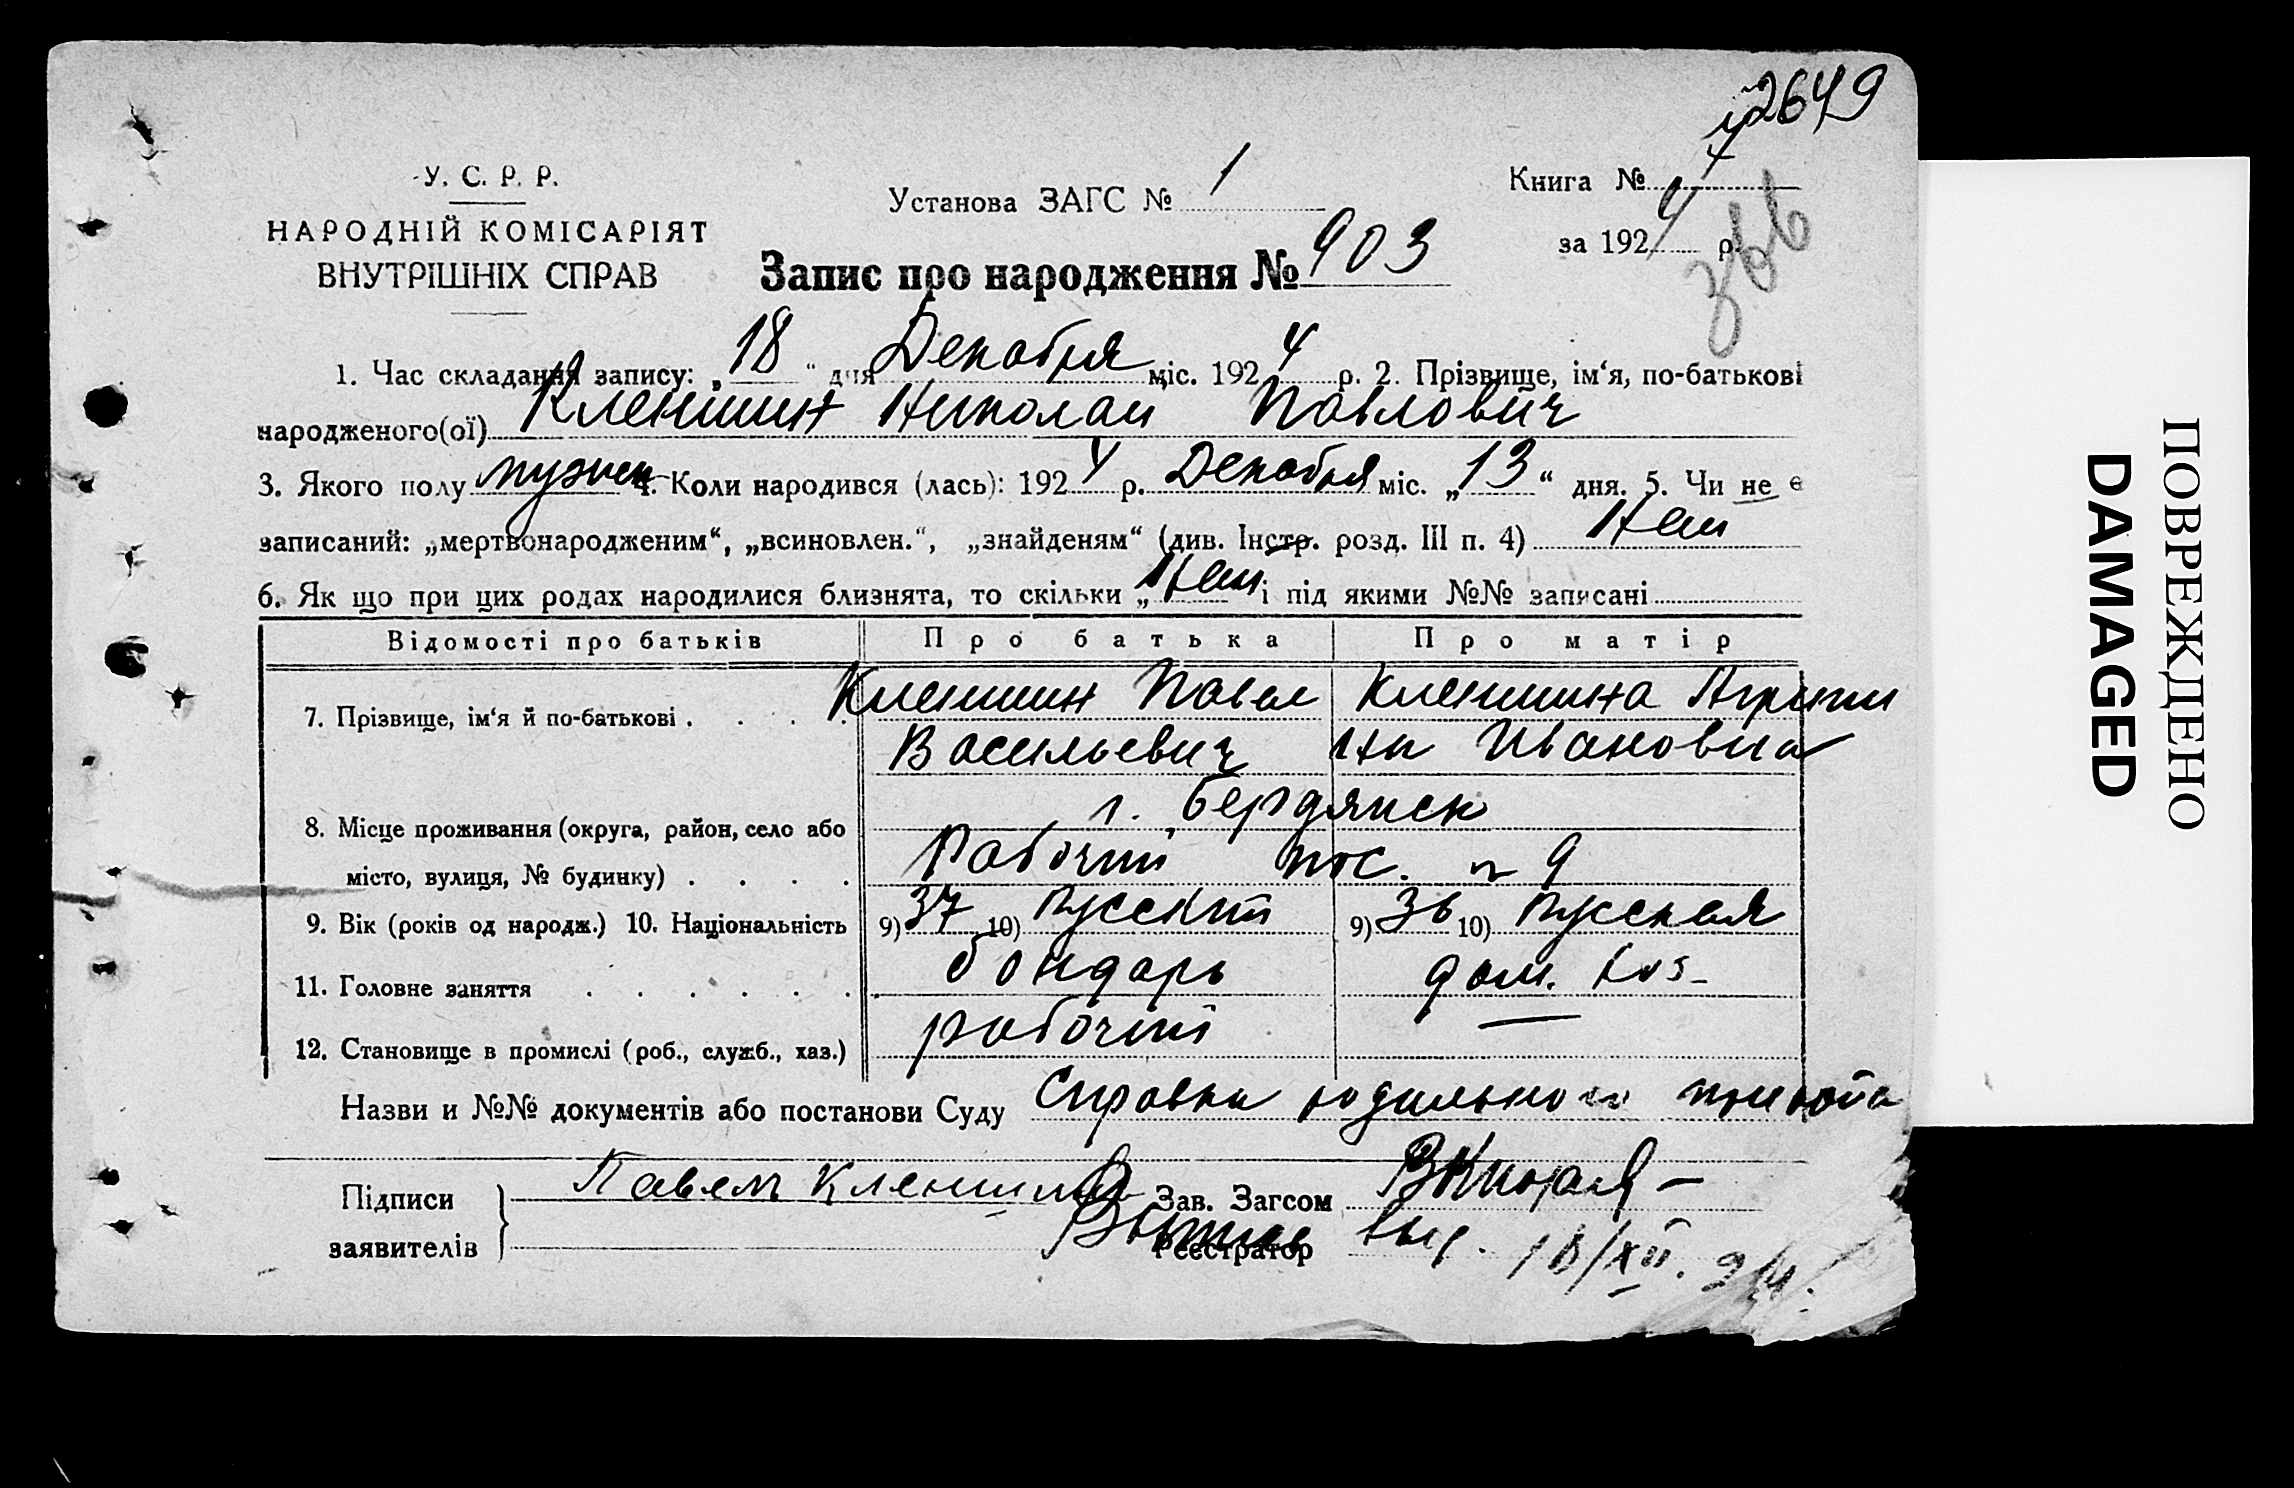 2649
У. С. Р. Р.
НАРОДНІЙ КОМІСАРІЯТ
ВНУТРІШНІХ СПРАВ
Установа ЗАГС № 1
Книга № 7
за 1924 р.
366
Запис про народження № 903
1. Час складання запису: „18“ дня Декабря міс. 1924 р. 2. Прізвище, ім‘я, по-батькові
народженого(ої) Кленшин Николай Павлович
3. Якого полу мужск 4. Коли народився (лась): 1924 р. Декабря міс. „13“ дня. 5. Чи не є
записаний: „мертвонародженим“, „всиновлен.“, „знайденям“ (див. Інстр. розд. III п. 4) Нет
6. Як що при цих родах народилися близнята, то скільки „Нет і під якими №№ записані
Відомості про батьків Про батька Про матір
7. Прізвище, ім‘я й по-батькові . . . . Кленшин Павел Кленшина Агрипи
Васильевич на Ивановна
8. Місце проживання (округа, район, село або г. Бердянск
місто, вулиця, № будинку) . . . . Рабочий пос. № 9
9. Вік (років од народж.) 10. Національність 9) 37 10) Русский 9) 36 10) Русская
11. Головне заняття . . . . . . бондарь дом. хоз-
12. Становище в промислі (роб., служб., хаз.) рабочий —
Назви и №№ документів або постанови Суду Справка родильного приюта
Підписи Павел Кленшин Зав. Загсом
заявителів Реєстратор
18/XII. 24.
ПОВРЕЖДЕНО
DAMAGED